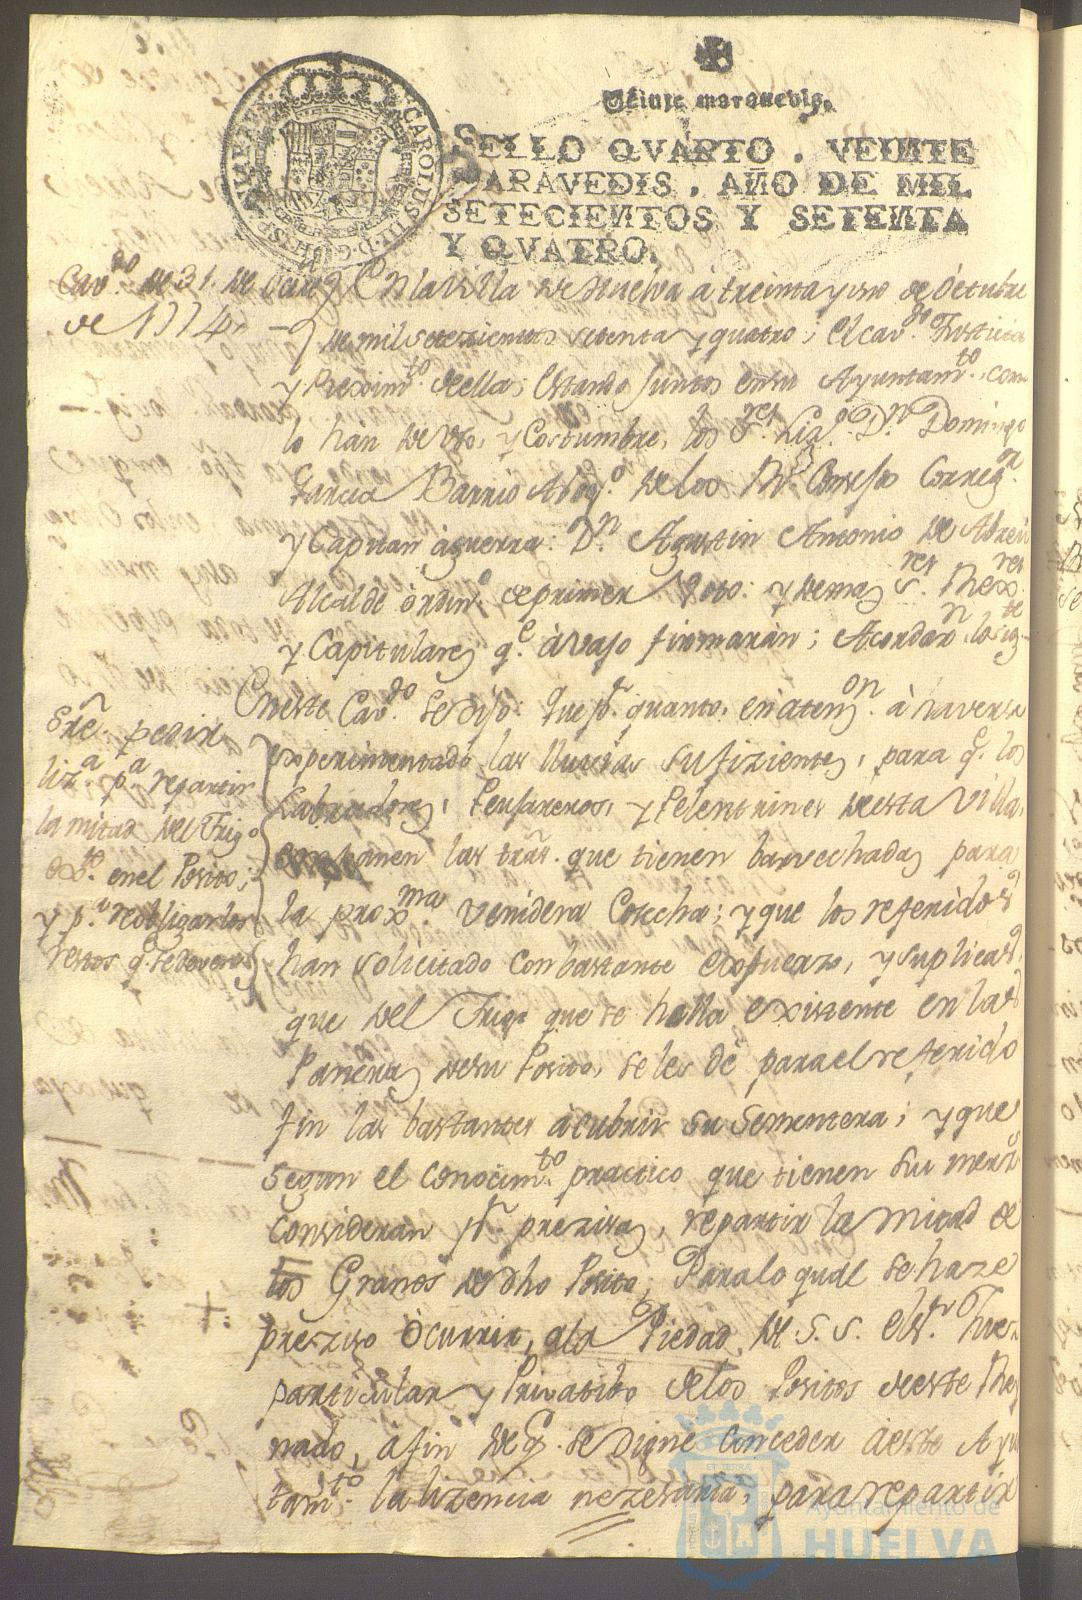 Veinte maravedis.
SELLO QVARTO, VEINTE
MARAVEDIS, AÑO DE MIL
SETECIENTOS Y SETENTA
Y QVATRO.
CAROLUS III D G HISP
Cav.do de 31. de Octre
de 1774.
En la Villa de Huelva à treinta y uno de Octubre
de mil setezientos setenta y quatro; El cav.do Justicia
y Reximto. de ella, Estando Juntos en su Ayuntamto. como
lo hàn de Uso, y Costumbre, los S.res Liz.do D.n Domingo
Garcia Barrio Abog.o de los R.s Consejos Correg.or
y Capitan àguerra. D.n Agustin Antonio de Abreu
Alcalde òrdin.o de primer Voto: y demas S.res Rex.res
y Capitulares q.e àvajo firmaràn; Acordar.n lo sig.te
Sre. pedir
liz.a p.a repartir
la mitad del Trigo
ext.te en el Posito;
y p.a reobligar los
restos q.e se deven
En este Cav.do se dijo: Que p.r quanto, en aten.on à haverse
experimentado las lluvias sufizientes, para q.e los
Labradores, Peujareros, y Pelentrines de esta Villa,
empanen las trãs. que tienen barvechadas para
la prox.ma venidera Cosecha; y que los referidos
han solicitado con bastante esfuerzo, y suplicas
que del Trigo que se halla existente en las
Paneras de su Posito, se les dè para el referido
fin las bastantes à cubrir su sementera; y que
segun el conocim.to practico que tienen sus merz.s
consideran p.r prezisa, repartir la mitad de
los Granos de dho Posito; Para lo qual se haze
prezizo òcurrir, a la Piedad de S. S. el S.r Juez
particular y Privatibo de los Positos de este Rey
nado, a fin de q.e se digne conceder à este Ayun
tam.to la lizencia nezesaria, para repartir
Ayuntamiento de
HUELVA